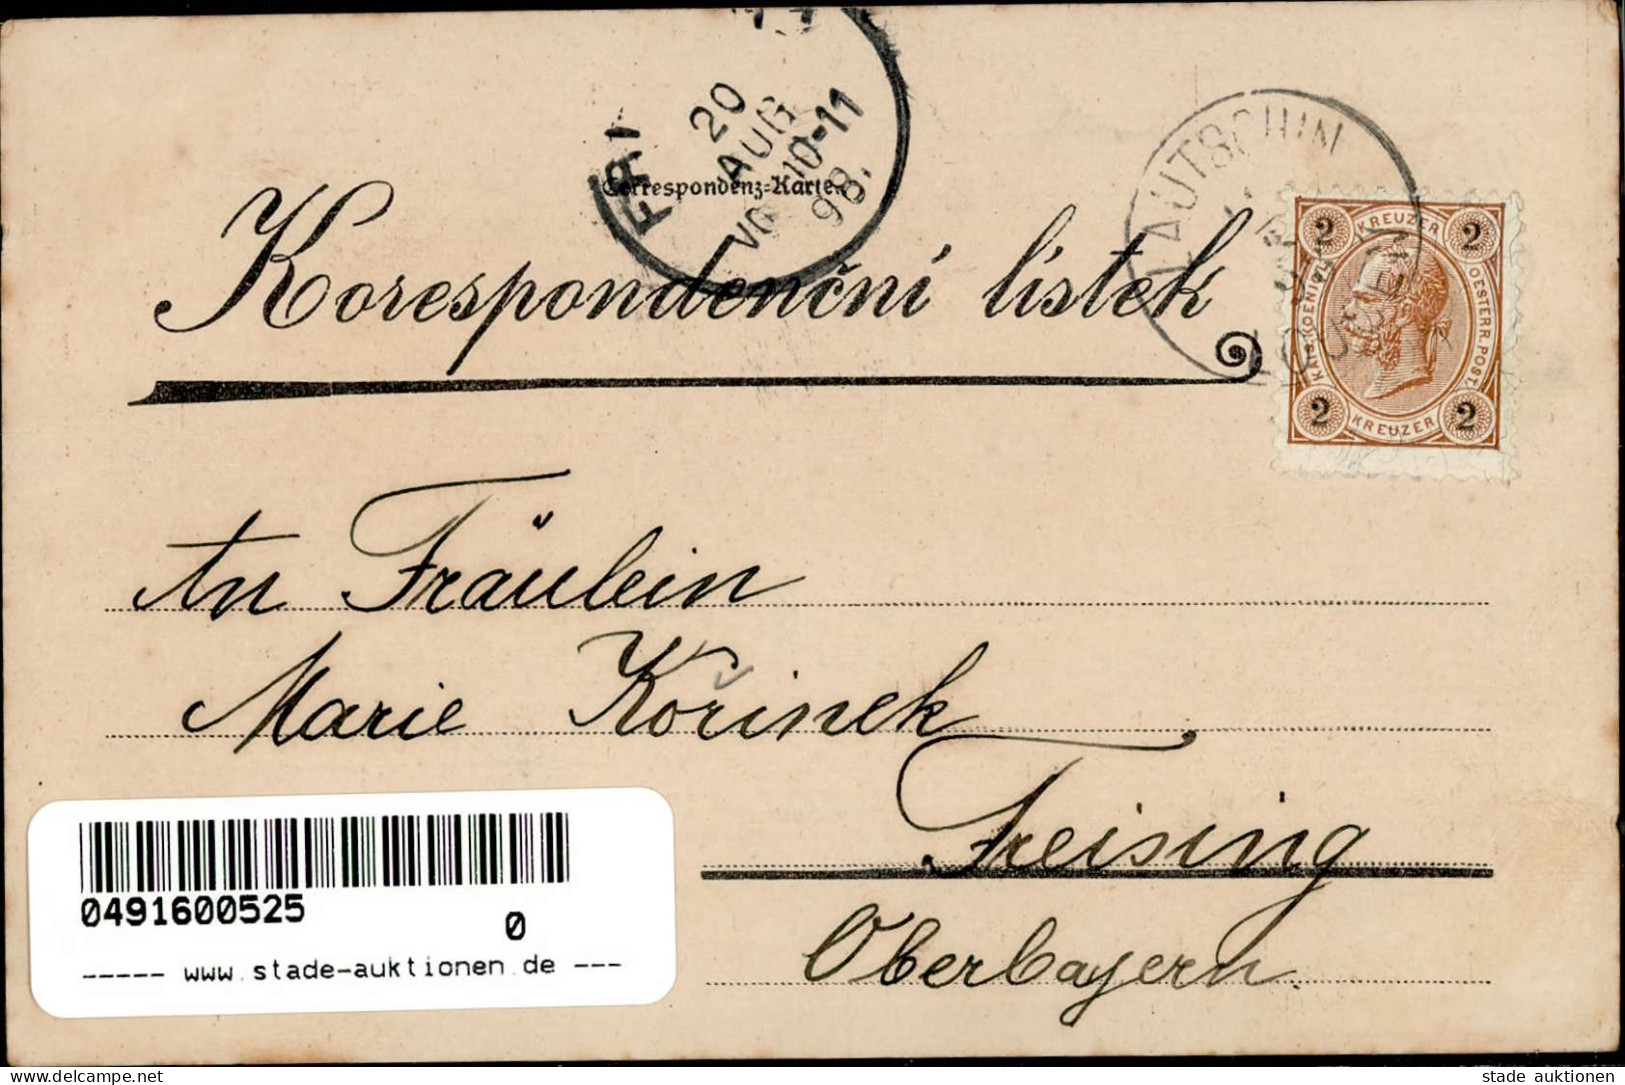 20
AUG
10-11
98.
Correspondenz-Karte.
LAUTSCHIN
LOUČEŇ
Korespondenční lístek
2 KREUZER 2
KAIS. KOENIGL. OESTERR. POST.
2 KREUZER 2
An Fräulein
Marie Kořinek
Freising
Oberbayern.
0491600525
0
----- www.stade-auktionen.de ---
www.delcampe.net
stade auktionen